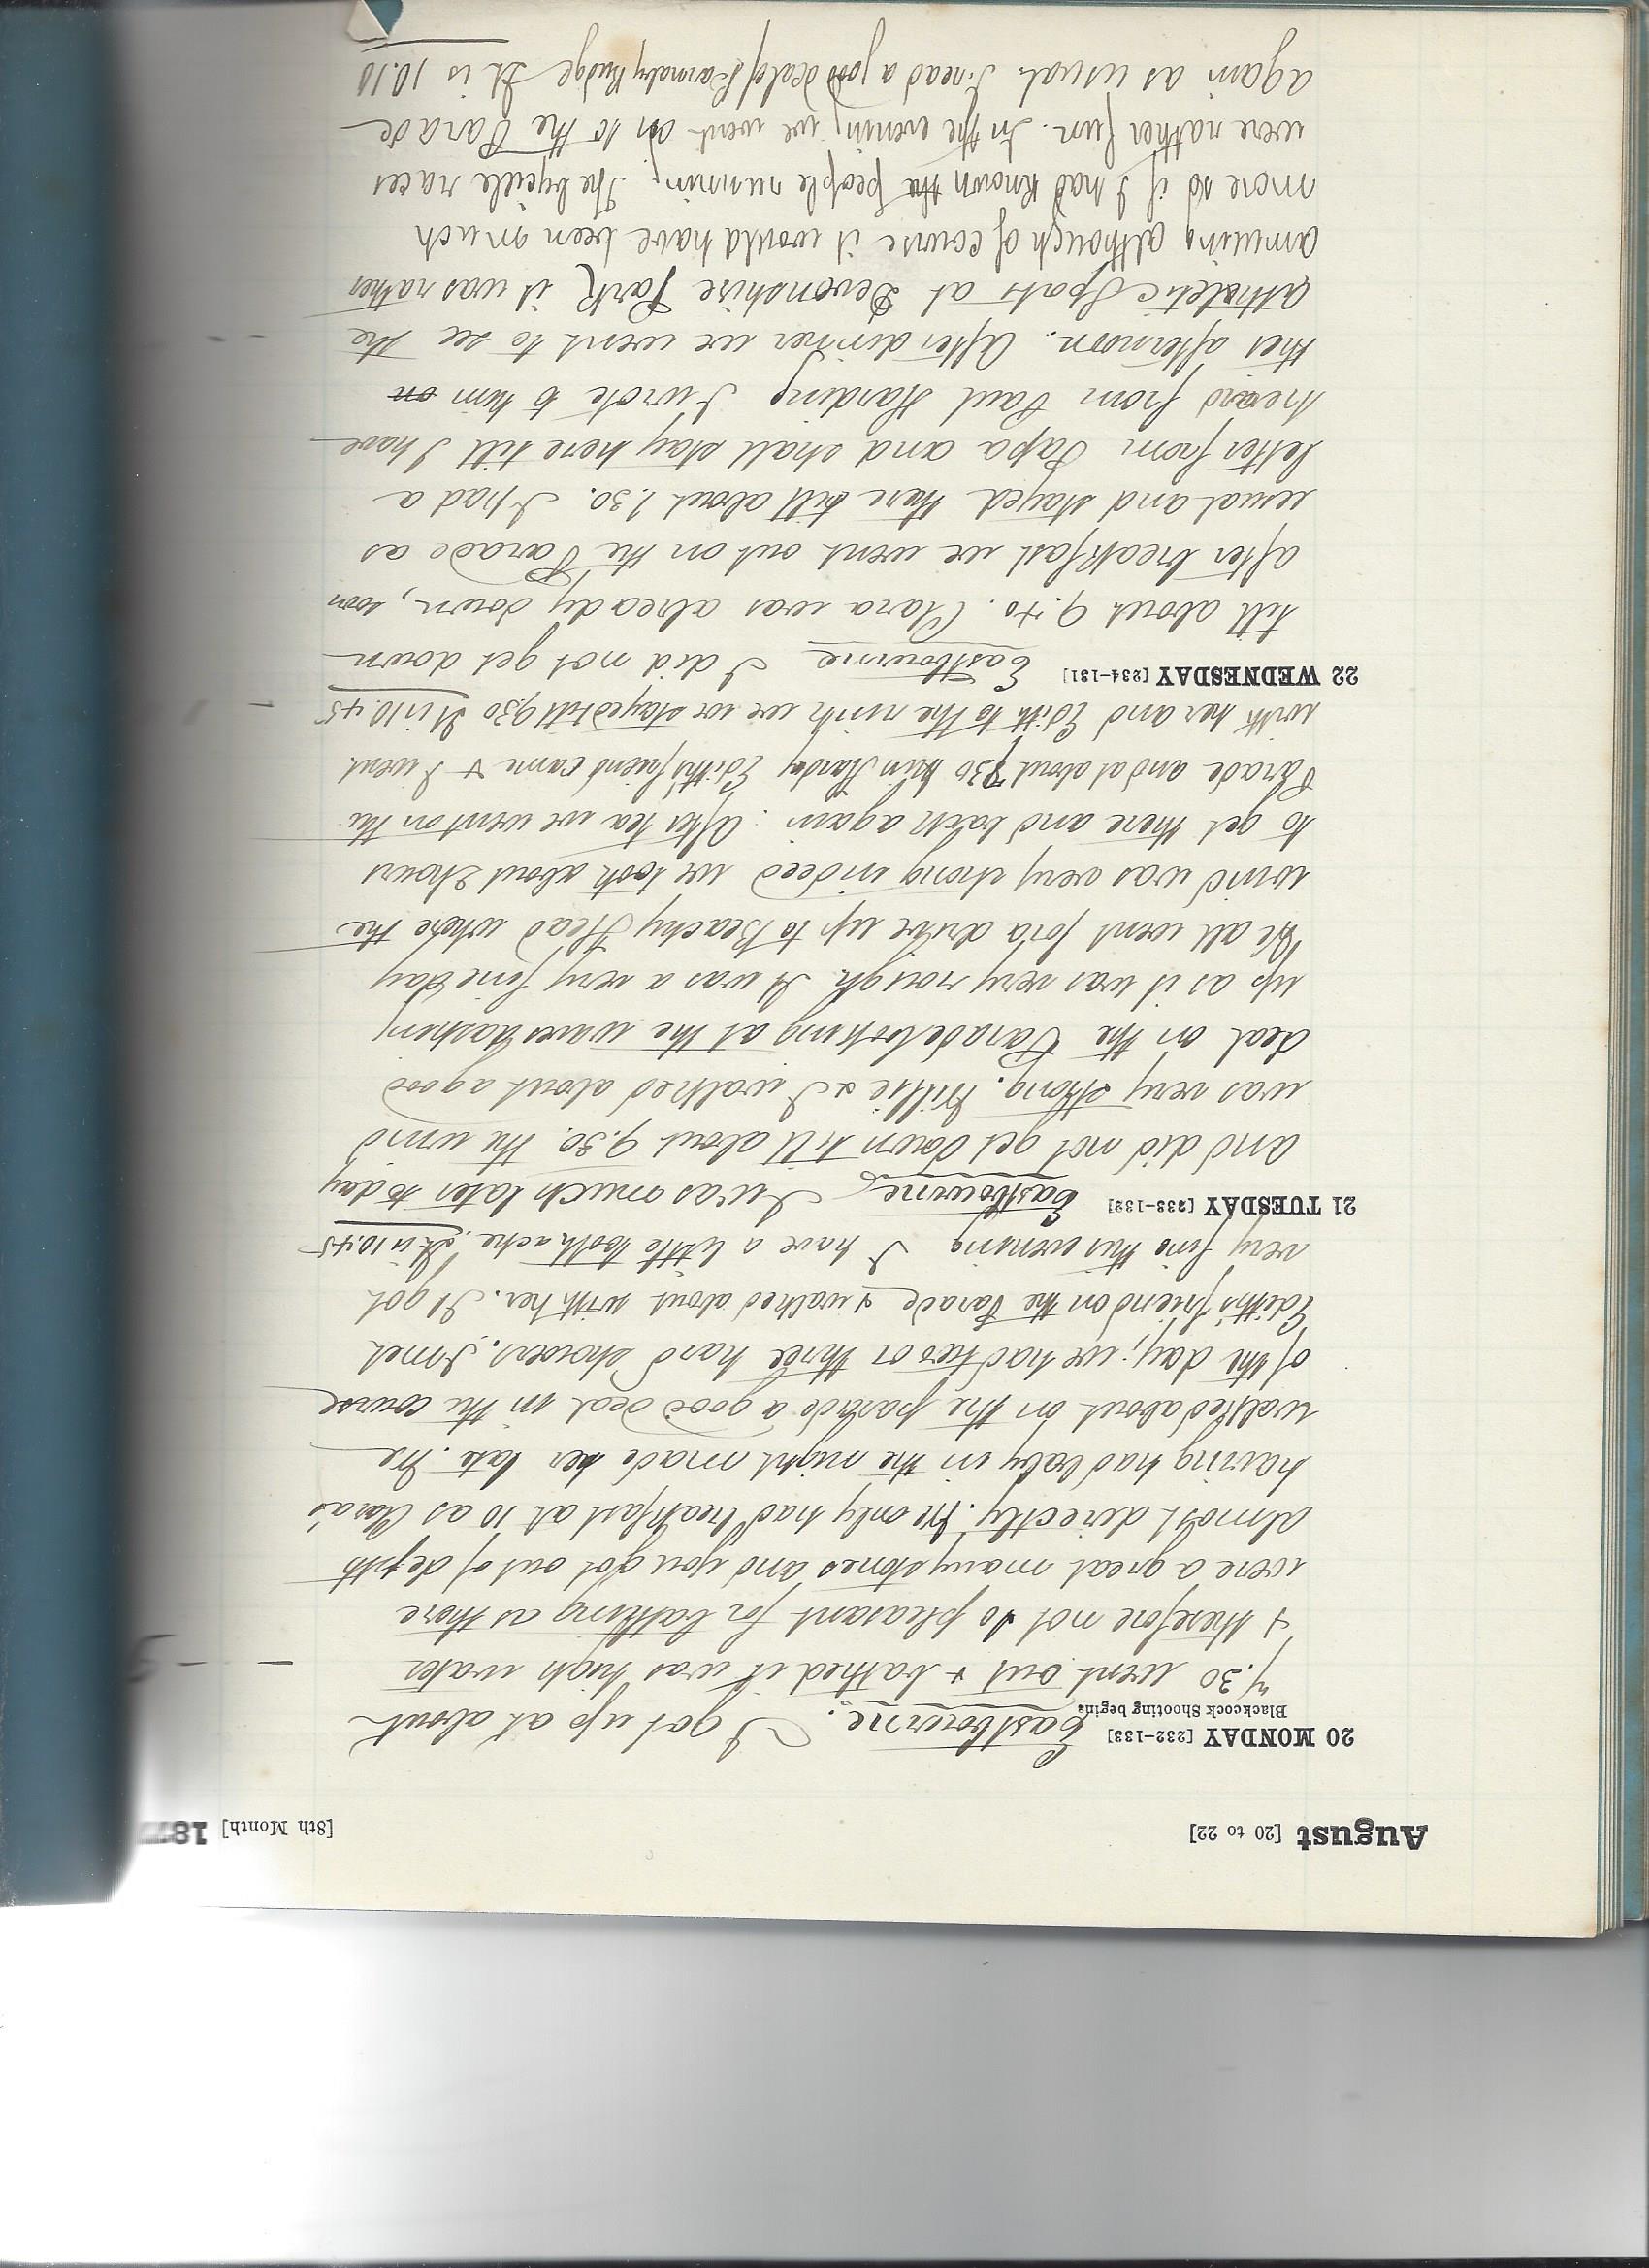 August [20 to 22] [8th Month] 187
20 MONDAY [232-133] Eastbourne. I got up at about
Blackcock Shooting begins
7.30 went out + bathed it was high water
+ therefore not so pleasant for bathing as there
were a great many stones and you got out of depth
almost directly. We only had breakfast at 10 as Clara's
having had baby in the night made her late. We
walked about on the parade a good deal in the course
of the day; we had two or three hard showers. I met
Edith's friend on the Parade & walked about with her. It got
very fine this evening I have a little toothache. It is 10.45
21 TUESDAY [233-132] Eastbourne, I was much later to day
and did not get down till about 9.30. The wind
was very strong. Willie & I walked about a good
deal on the Parade looking at the waves dashing
up as it was very rough. It was a very fine day
We all went for a drive up to Beachy Head where the
wind was very strong indeed we took about 2 hours
to get there and back again. After tea we went on the
Parade and at about 7.30 Miss Harday Edith's friend came + I went
with her and Edith to the rink we we stayed till 9.30 It is 10.45
22 WEDNESDAY [234-131] Eastbourne I did not get down
till about 9.40. Clara was already down, soon
after breakfast we went out on the Parade as
usual and stayed there till about 1.30. I had a
letter from Papa and shall stay here till I have
heard from Paul Harding I wrote to him on
this afternoon. After dinner we went to see the
athletic Sports at Devonshire Park it was rather
amusing although of course it would have been much
more so if I had known the people running. The bycicle races
were rather fun. In the evening we went on to the Parade
again as usual. I read a good deal of Barnaby Rudge It is 10.10